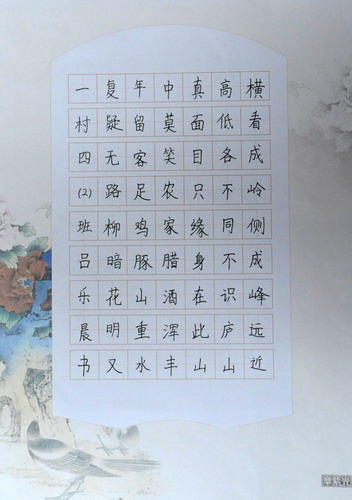 横看成岭侧成峰远近
高低各不同不识庐山
真面目只缘身在此山
中莫笑农家腊酒浑丰
年留客足鸡豚山重水
复疑无路柳暗花明又
一村四⑵班吕乐晨书